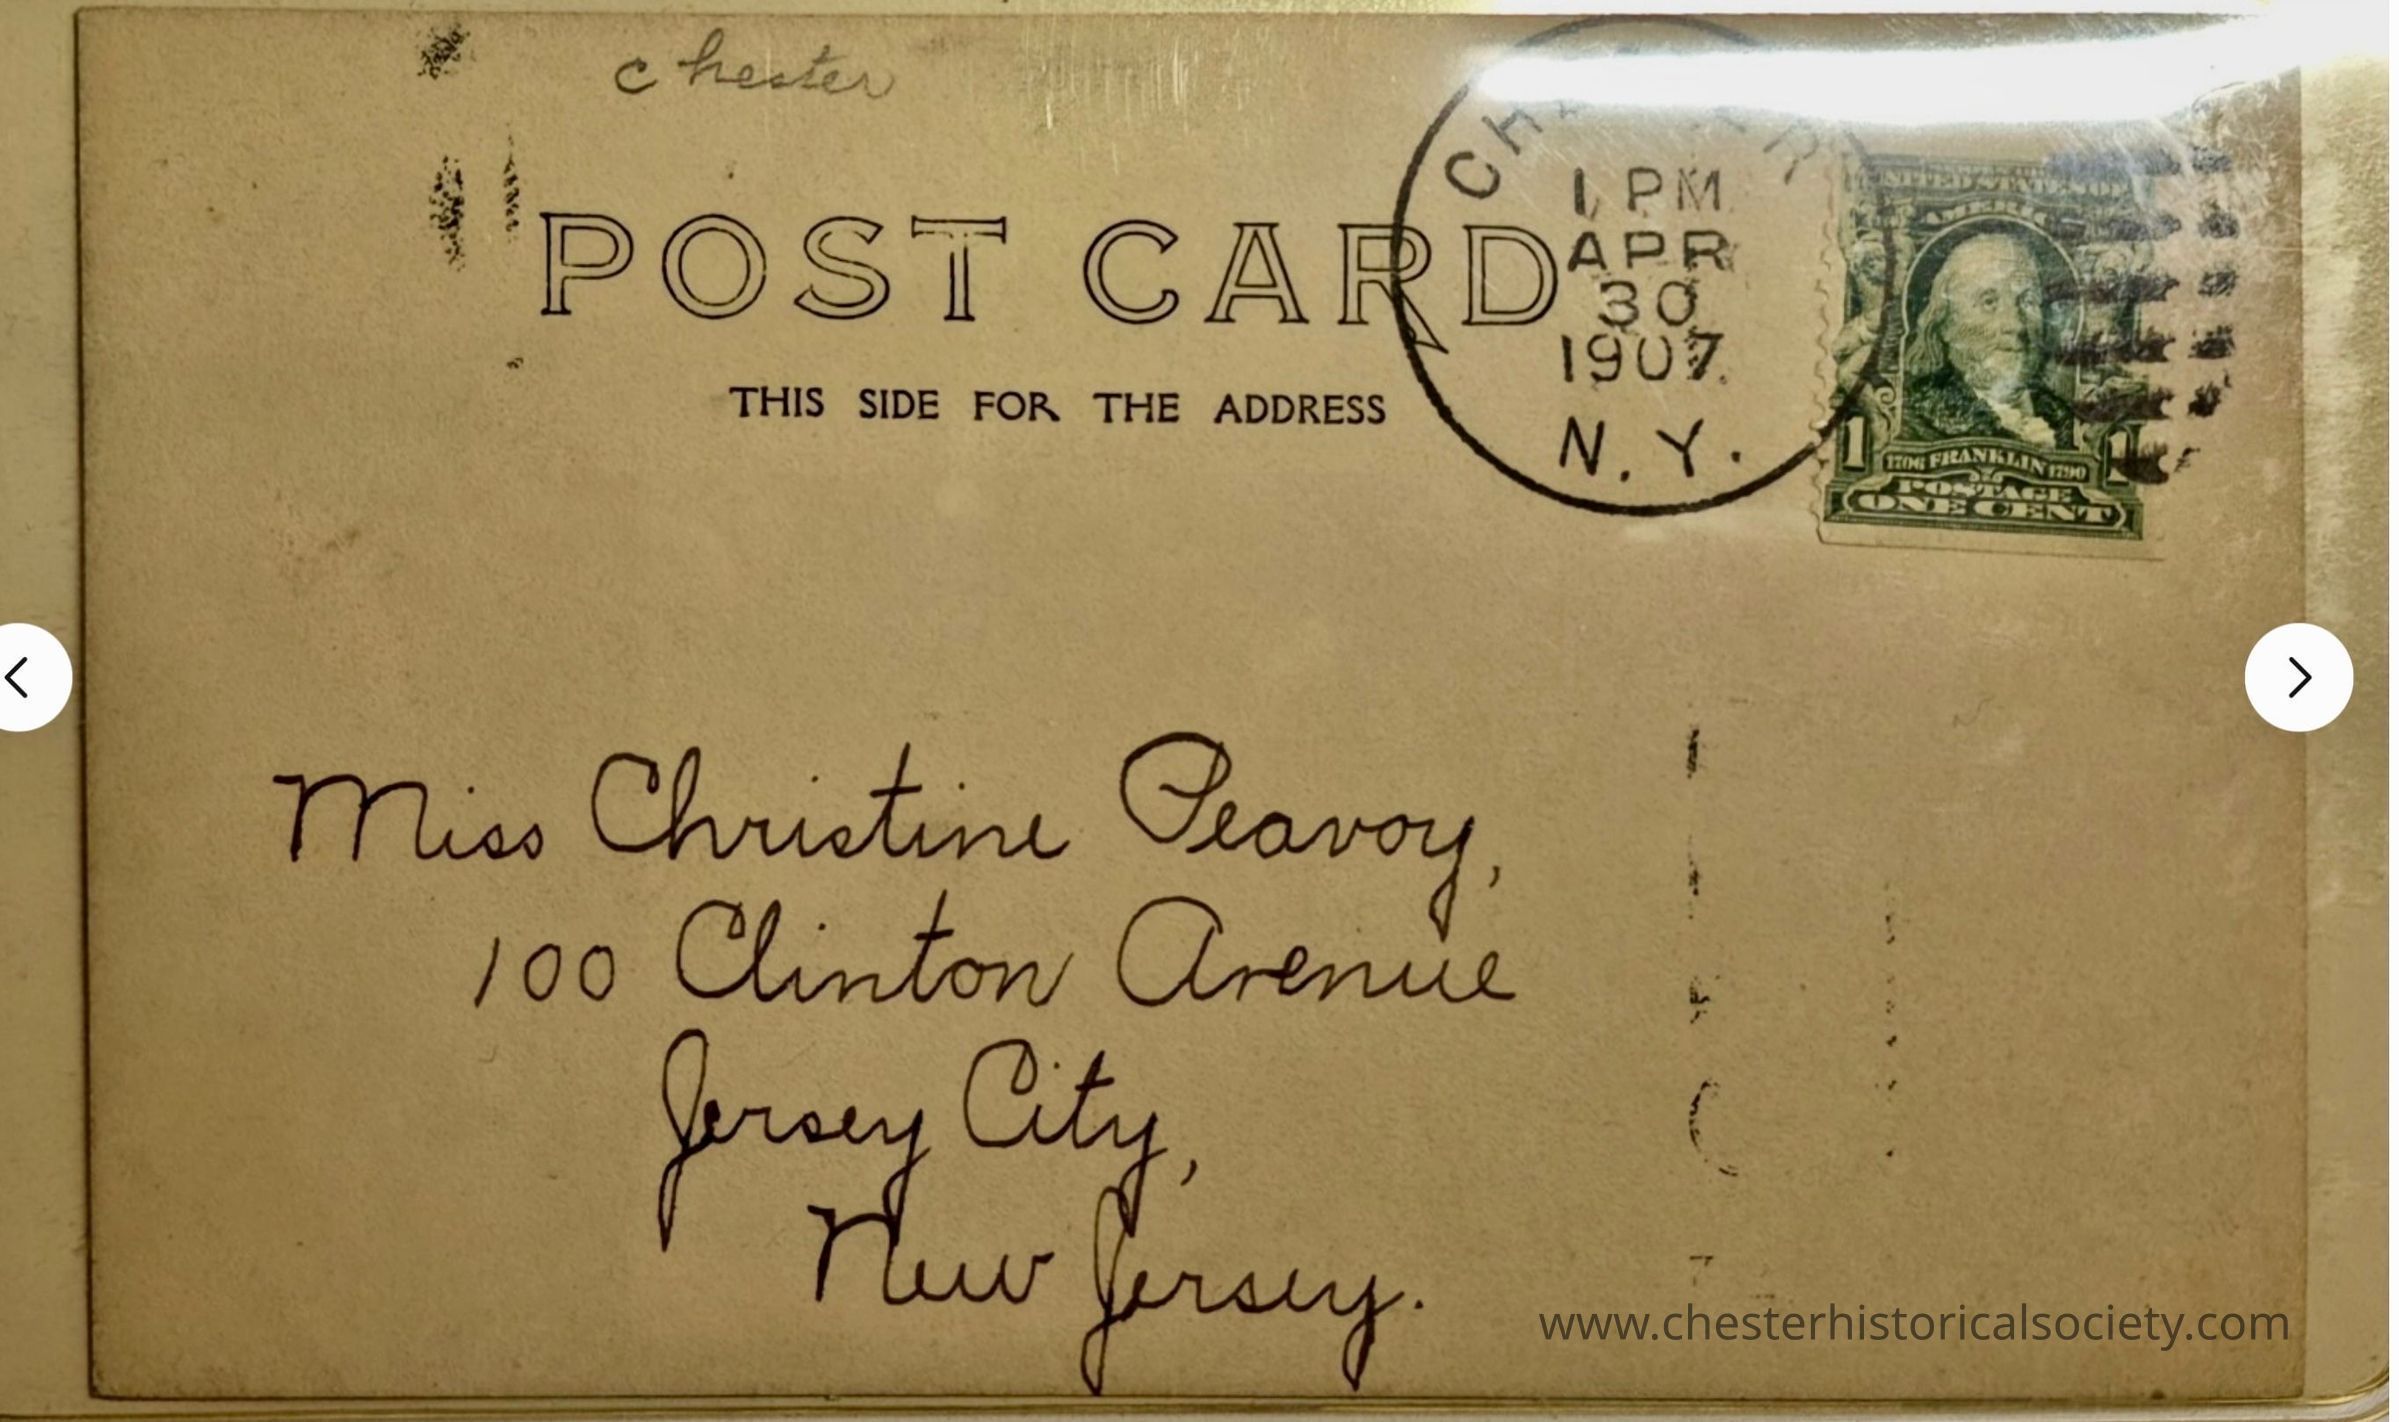 chester
POST CARD
THIS SIDE FOR THE ADDRESS
1 PM
APR
30
1907
N. Y.
UNITED STATES OF
AMERICA
1 1706 FRANKLIN 1790 1
POSTAGE
ONE CENT
Miss Christine Peavoy,
100 Clinton Avenue
Jersey City,
New Jersey.
www.chesterhistoricalsociety.com